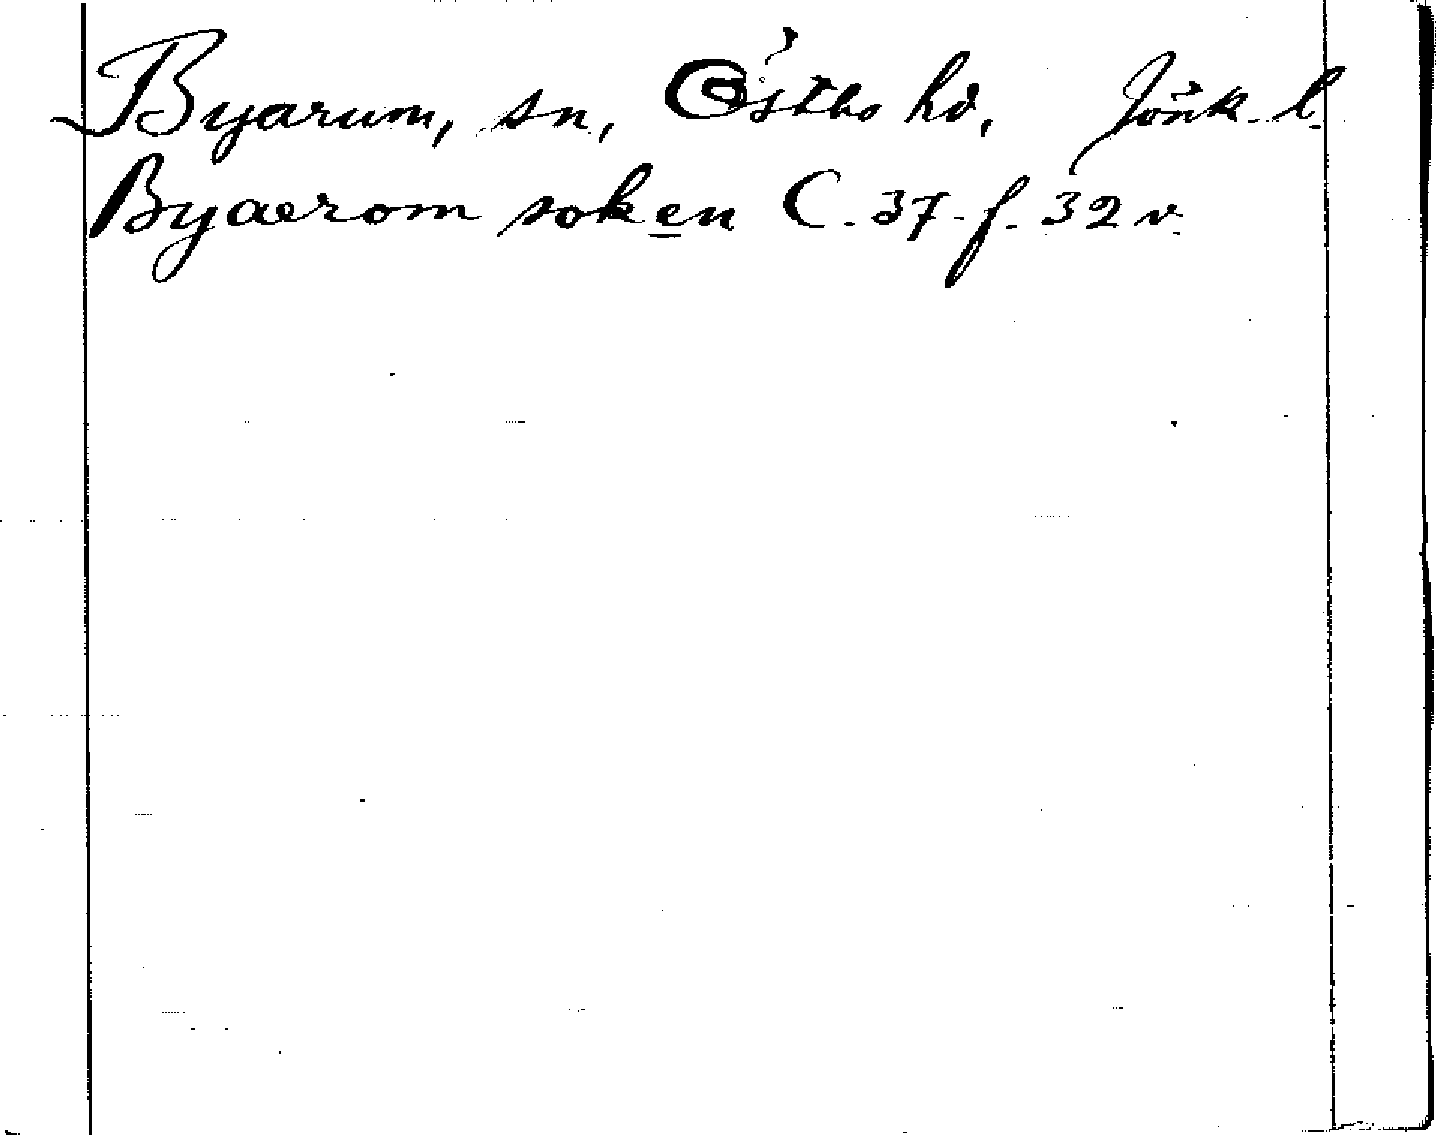 Byarum, sn, Östbo hd, Jönk. l.
Byaerom soken C. 37. f. 32 v.